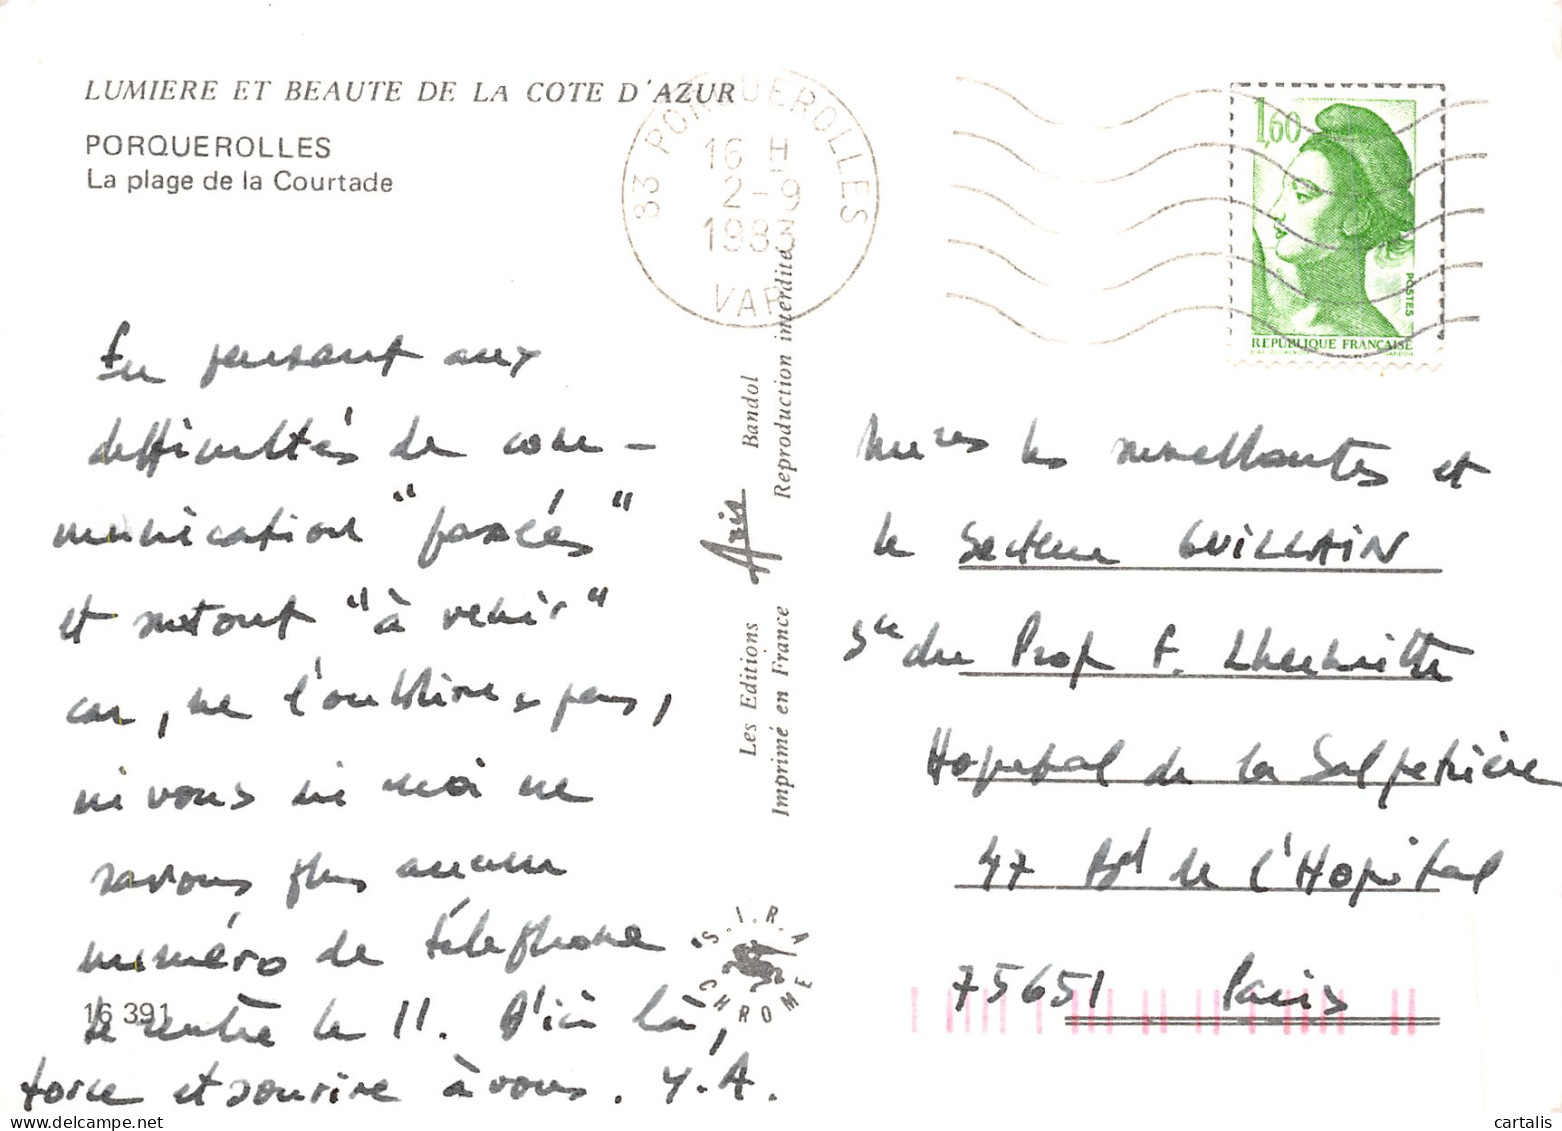 LUMIERE ET BEAUTE DE LA COTE D'AZUR
PORQUEROLLES
La plage de la Courtade
83 PORQUEROLLES
16 H
2-9
1983
VAR
1,60
POSTES
REPUBLIQUE FRANÇAISE
En pensant aux
difficultés de com-
munication "passées"
et surtout "à venir"
car, ne l'oublions pas,
ni vous ni moi ne
savons plus aucun
numéro de téléphone.
Je rentre le 11. D'ici là,
force et sourire à vous. Y.A.
16 391
Les Editions Aris Bandol
Imprimé en France Reproduction interdite
S.I.R.A
CHROME
les surveillantes et
le Secteur GUILLAIN
Sce du Prof F. Lhermitte
Hopital de la Salpetrière
47 Bd de l'Hopital
75651 Paris
cartalis